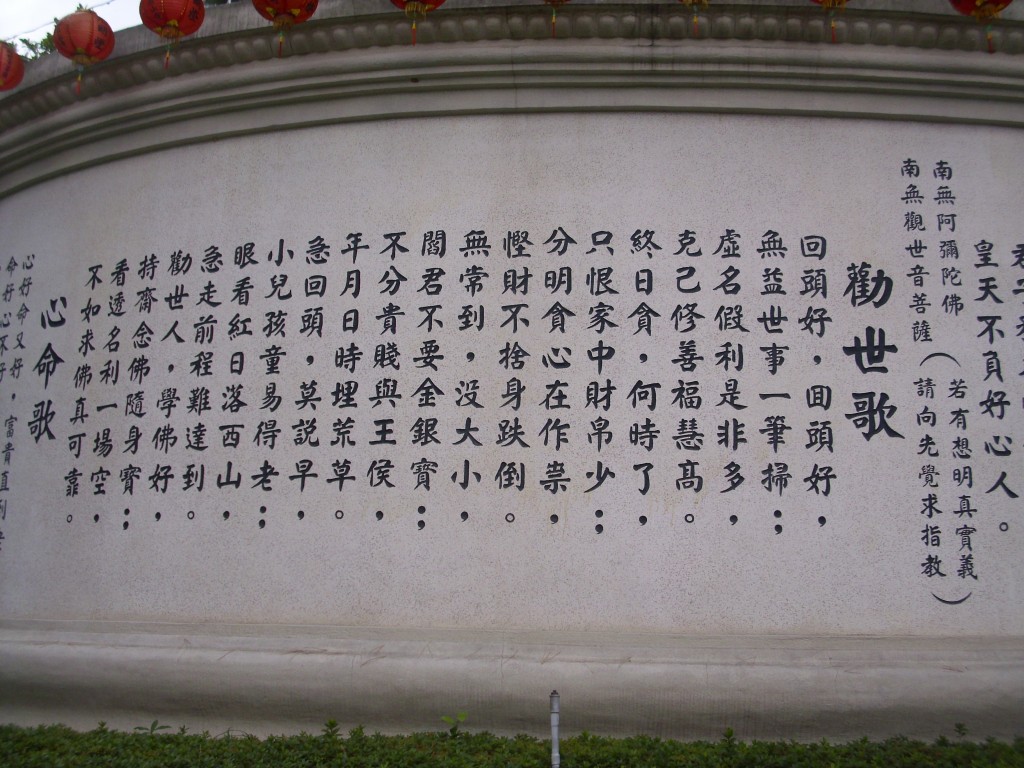 皇天不負好心人。
南無阿彌陀佛（若有想明真實義
南無觀世音菩薩（請向先覺求指教）
勸世歌
回頭好，回頭好，
無益世事一筆掃；
虛名假利是非多，
克己修善福慧高。
終日貪，何時了，
只恨家中財帛少；
分明貪心在作祟，
慳財不捨身跌倒。
無常到，没大小，
閻君不要金銀寶；
不分貴賤與王侯，
年月日時埋荒草。
急回頭，莫説早，
小兒孩童易得老；
眼看紅日落西山，
急走前程難達到。
勸世人，學佛好，
持齋念佛隨身寶；
看透名利一場空，
不如求佛真可靠。
心命歌
心好命又好，富貴直到
命好心不好